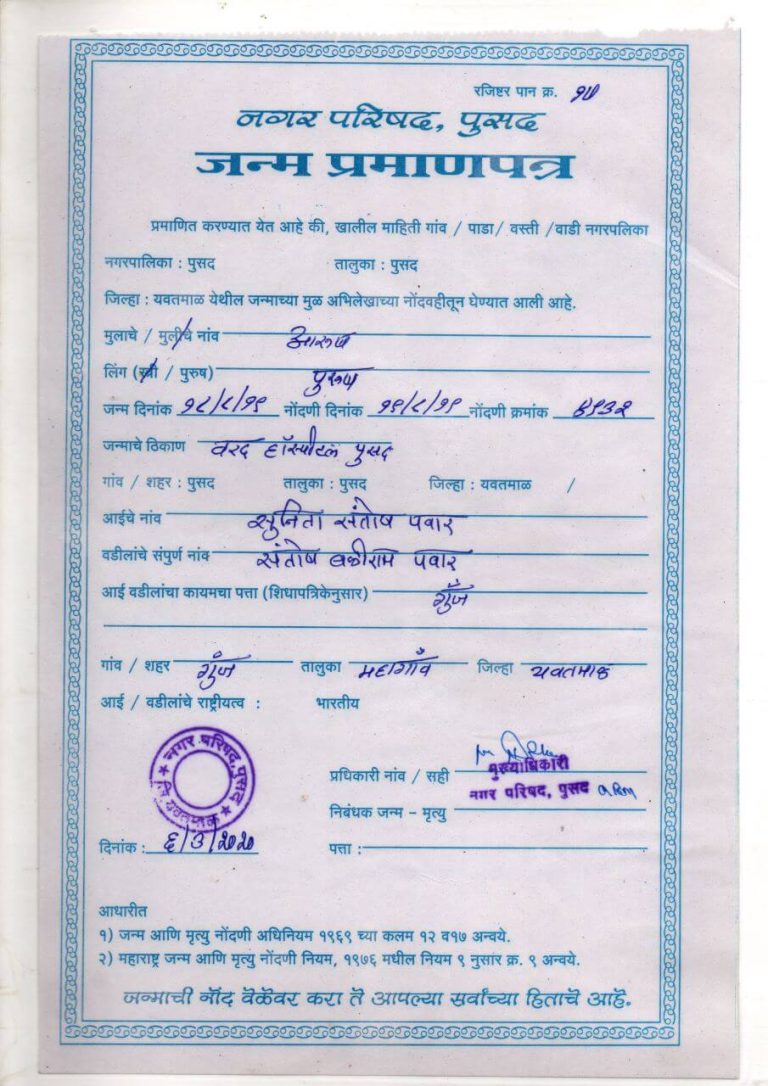 रजिष्टर पान क्र. १७
नगर परिषद, पुसद
जन्म प्रमाणपत्र
प्रमाणित करण्यात येत आहे की, खालील माहिती गांव / पाडा/ वस्ती /वाडी नगरपलिका
नगरपालिका : पुसद तालुका : पुसद
जिल्हा : यवतमाळ येथील जन्माच्या मुळ अभिलेखाच्या नोंदवहीतून घेण्यात आली आहे.
मुलाचे / मुलीचे नांव आरुष
लिंग (स्त्री / पुरुष) पुरुष
जन्म दिनांक १८/८/१९ नोंदणी दिनांक १९/८/१९ नोंदणी क्रमांक
जन्माचे ठिकाण वरद हॉस्पीटल पुसद
गांव / शहर : पुसद तालुका : पुसद जिल्हा : यवतमाळ /
आईचे नांव सुनिता संतोष पवार
वडीलांचे संपुर्ण नांव संतोष बळीराम पवार
आई वडीलांचा कायमचा पत्ता (शिधापत्रिकेनुसार) गुँज
गांव / शहर गुंज तालुका महागाँव जिल्हा यवतमाळ
आई / वडीलांचे राष्ट्रीयत्व : भारतीय
नगर परिषद, पुसद
जि. यवतमाळ
प्रधिकारी नांव / सही
मुख्याधिकारी
नगर परिषद, पुसद
निबंधक जन्म - मृत्यु
दिनांक : ६/३/२०२० पत्ता :
आधारीत
१) जन्म आणि मृत्यु नोंदणी अधिनियम १९६९ च्या कलम १२ व१७ अन्वये.
२) महाराष्ट्र जन्म आणि मृत्यु नोंदणी नियम, १९७६ मधील नियम ९ नुसांर क्र. ९ अन्वये.
जन्माची नोंद वेळेवर करा ते आपल्या सर्वांच्या हिताचे आहे.